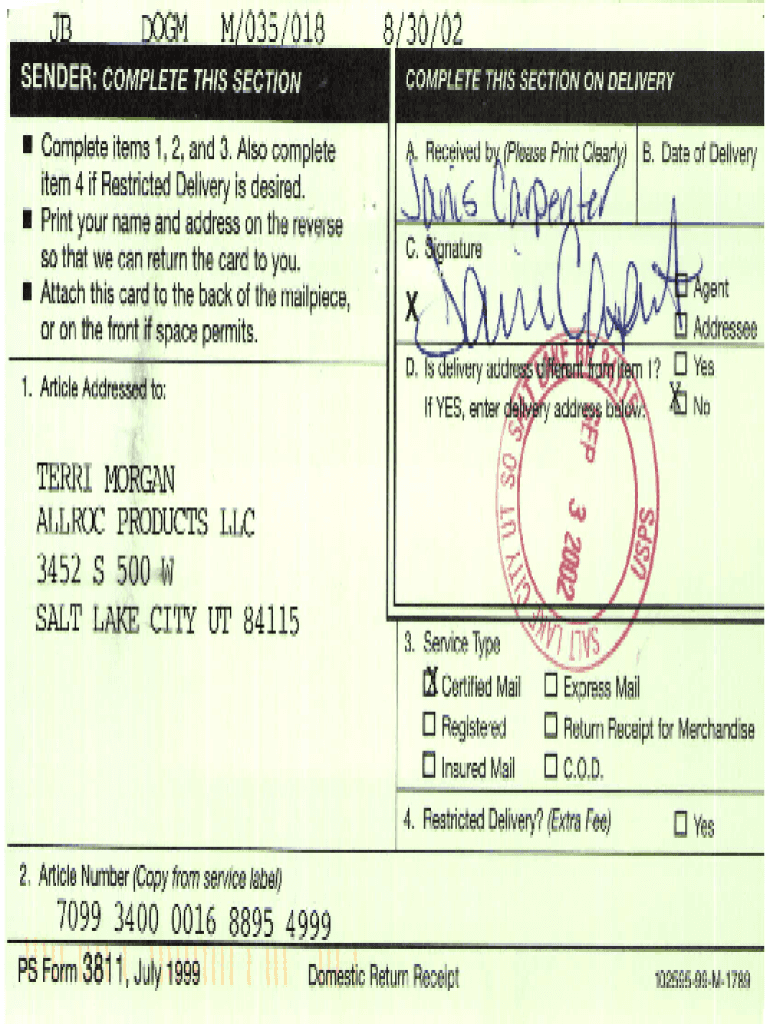 JB DOGM M/035/018 8/30/02
SENDER: COMPLETE THIS SECTION
■ Complete items 1, 2, and 3. Also complete
item 4 if Restricted Delivery is desired.
■ Print your name and address on the reverse
so that we can return the card to you.
■ Attach this card to the back of the mailpiece,
or on the front if space permits.
1. Article Addressed to:
TERRI MORGAN
ALLROC PRODUCTS LLC
3452 S 500 W
SALT LAKE CITY UT 84115
COMPLETE THIS SECTION ON DELIVERY
A. Received by (Please Print Clearly) B. Date of Delivery
Janis Carpenter
C. Signature
X Janis Carpenter
☐ Agent
☐ Addressee
D. Is delivery address different from item 1? ☐ Yes
If YES, enter delivery address below: ☒ No
SEP 3 2002
USPS
SALT LAKE CITY UT SO SALT LAKE
3. Service Type
☒ Certified Mail ☐ Express Mail
☐ Registered ☐ Return Receipt for Merchandise
☐ Insured Mail ☐ C.O.D.
4. Restricted Delivery? (Extra Fee) ☐ Yes
2. Article Number (Copy from service label)
7099 3400 0016 8895 4999
PS Form 3811, July 1999 Domestic Return Receipt 102595-99-M-1789